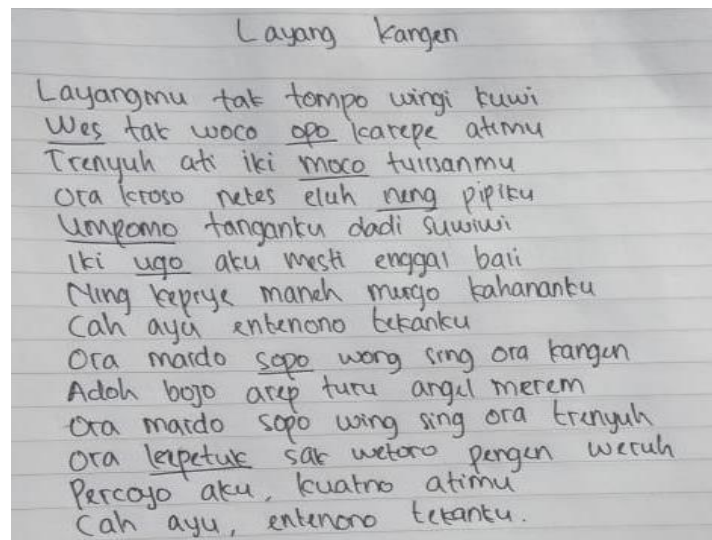 Layang kangen
Layangmu tak tompo wingi kuwi
Wes tak woco opo karepe atimu
Trenyuh ati iki moco tulisanmu
Ora kroso netes eluh neng pipiku
Umpomo tanganku dadi suwiwi
Iki ugo aku mesti enggal bali
Ning kepiye maneh murgo kahananku
Cah ayu entenono tekanku
Ora maido sopo wong sing ora kangen
Adoh bojo arep turu angel merem
Ora maido sopo wing sing ora trenyuh
Ora kepetuk sak wetoro pengen weruh
Percoyo aku, kuatno atimu
Cah ayu, entenono tekanku.